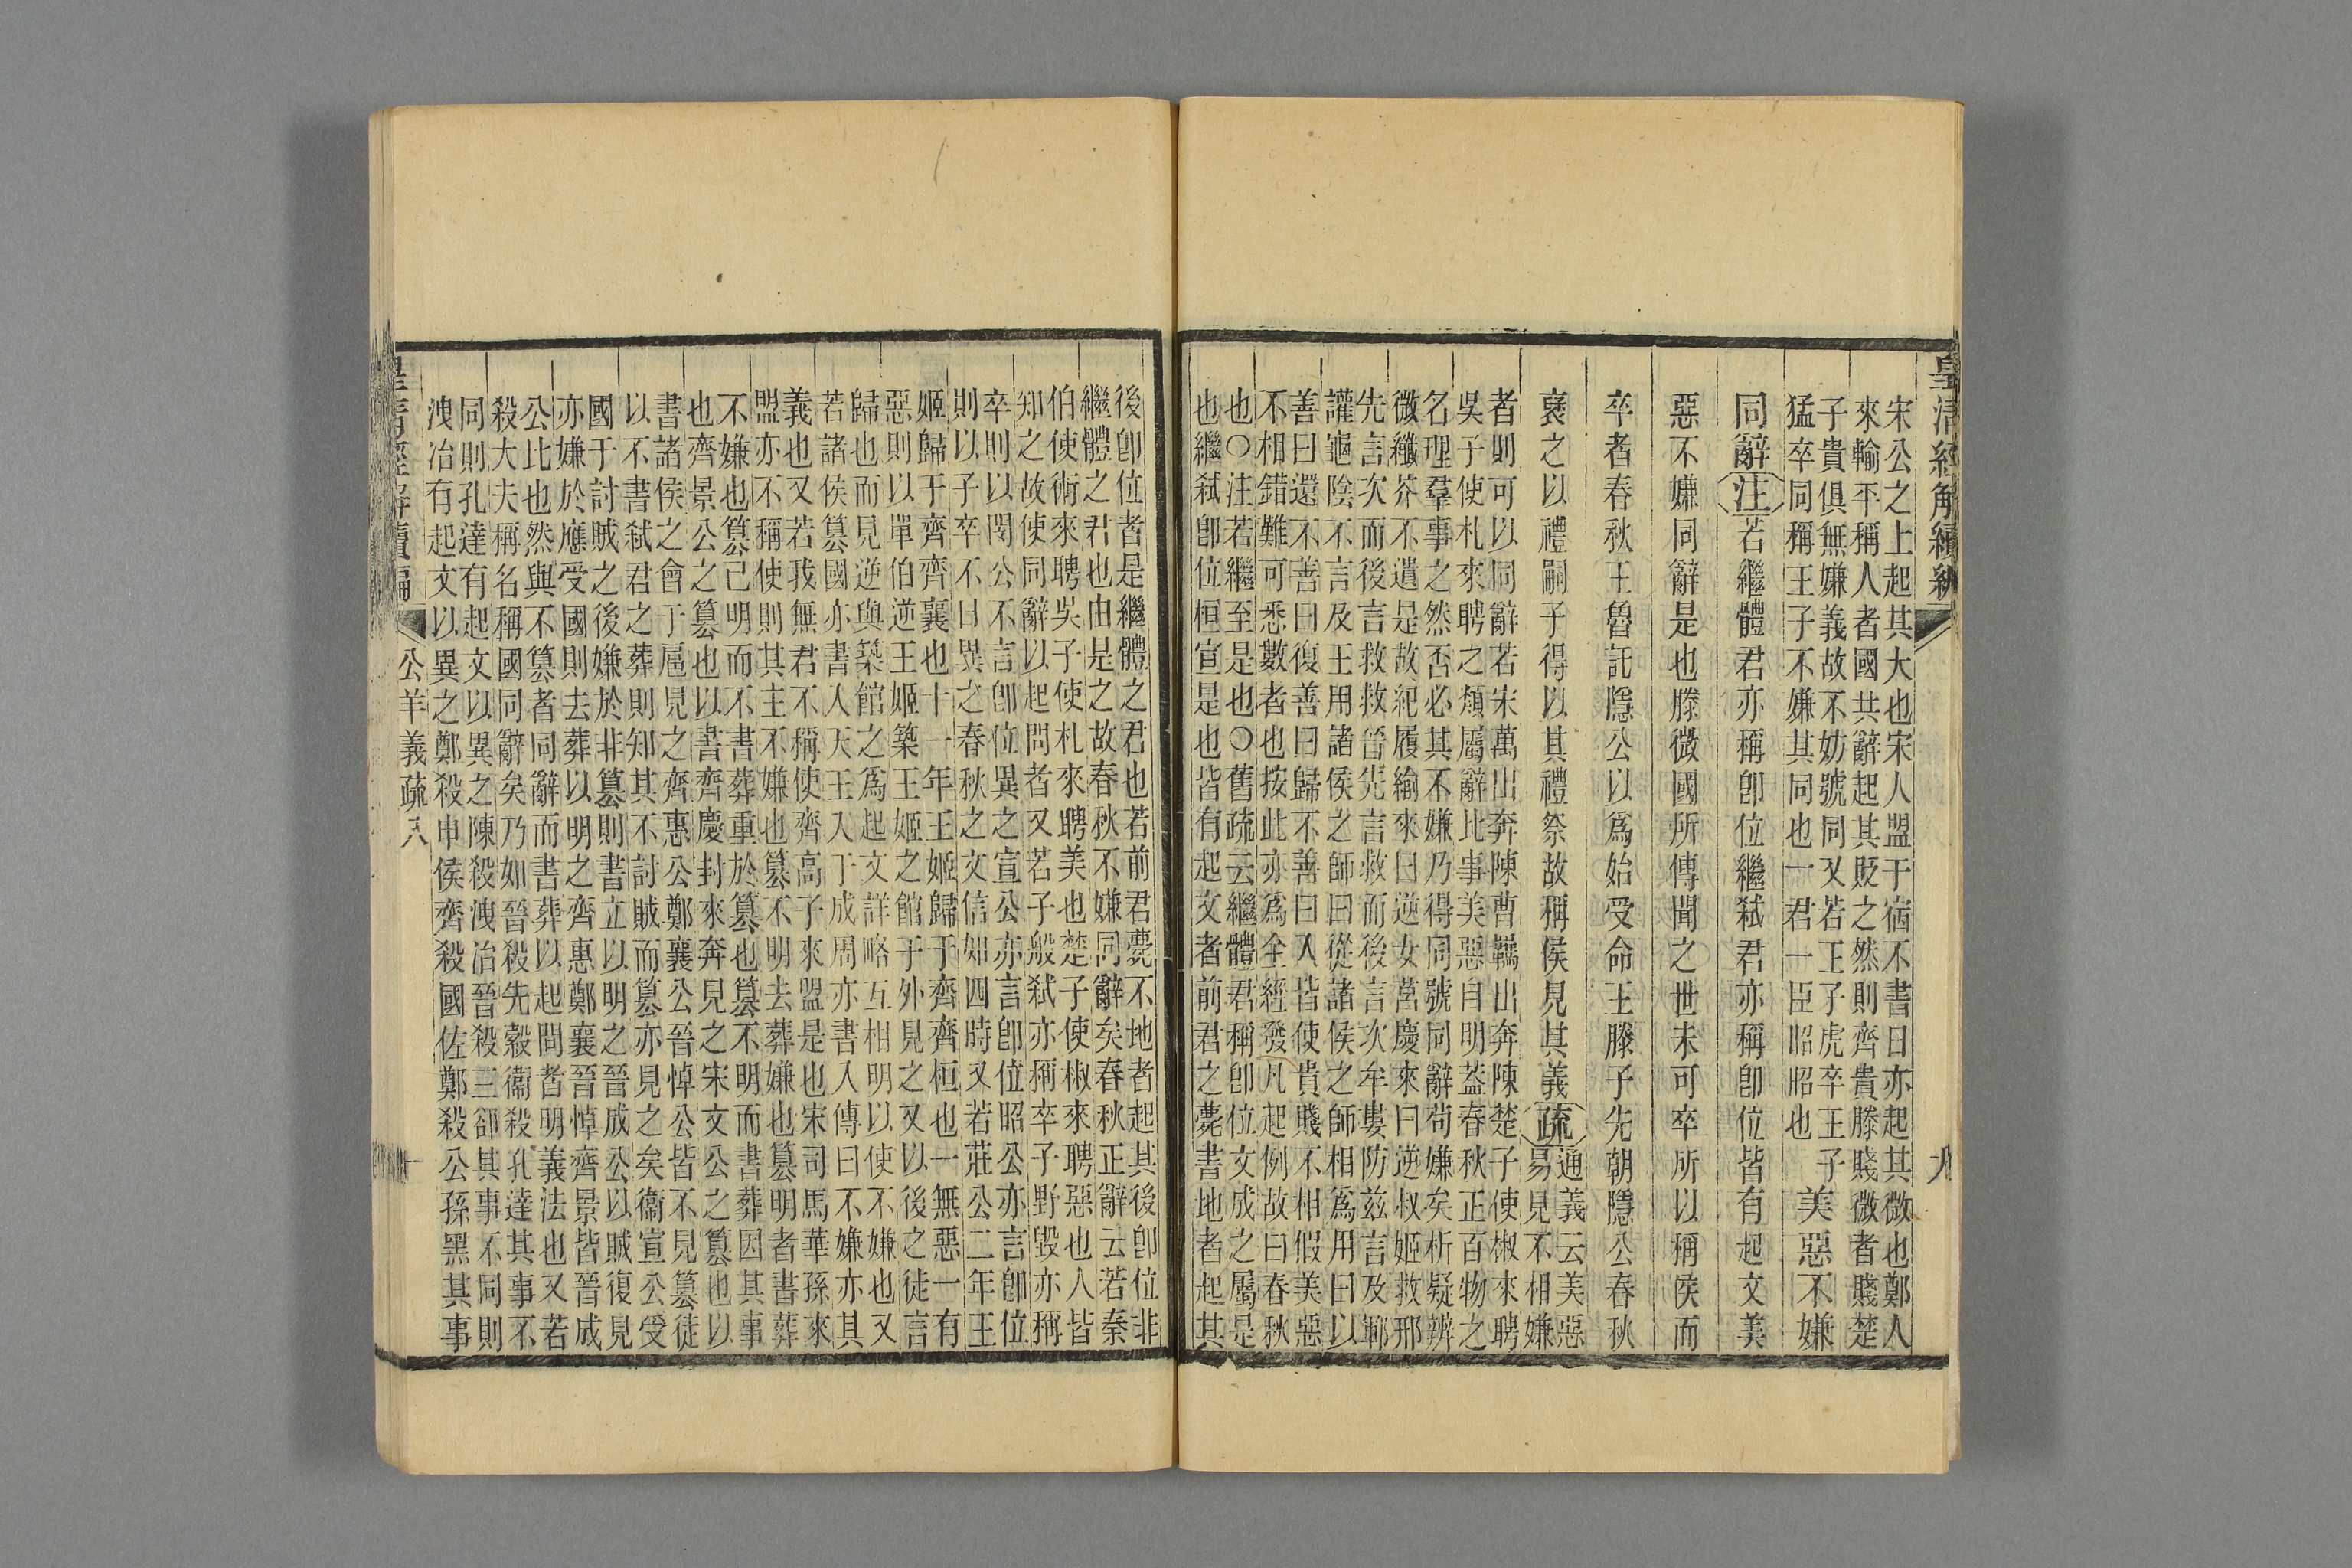 皇清經解續編
九
宋公之上起其大也宋人盟于宿不書日亦起其微也鄭人
來輸平稱人者國共辭起其貶之然則齊貴滕賤微者賤楚
子貴俱無嫌義故不妨號同又若王子虎卒王子
猛卒同稱王子不嫌其同也一君一臣昭昭也
美惡不嫌
同辭注若繼體君亦稱卽位繼弒君亦稱卽位皆有起文美
惡不嫌同辭是也滕微國所傳聞之世未可卒所以稱侯而
卒者春秋王魯託隱公以爲始受命王滕子先朝隱公春秋
褒之以禮嗣子得以其禮祭故稱侯見其義疏
通義云美惡
易見不相嫌
者則可以同辭若宋萬出奔陳曹羈出奔陳楚子使椒來聘
吳子使札來聘之類屬辭比事美惡自明蓋春秋正百物之
名理羣事之然否必其不嫌乃得同號同辭苟嫌矣析疑辨
微纖芥不遺是故紀履緰來曰逆女莒慶來曰逆叔姬救邢
先言次而後言救救晉先言救而後言次牟婁防茲言及鄆
讙龜陰不言及王用諸侯之師曰從諸侯之師相爲用曰以
善曰還不善曰復善曰歸不善曰入皆使貴賤不相假美惡
不相錯難可悉數者也按此亦爲全經發凡起例故曰春秋
也○注若繼至是也○舊疏云繼體君稱卽位文成之屬是
也繼弒卽位桓宣是也皆有起文者前君之薨書地者起其
後卽位者是繼體之君也若前君薨不地者起其後卽位非
繼體之君也由是之故春秋不嫌同辭矣春秋正辭云若秦
伯使術來聘吳子使札來聘美也楚子使椒來聘惡也人皆
知之故使同辭以起問者又若子般弒亦稱卒子野毀亦稱
卒則以閔公不言卽位異之宣公亦言卽位昭公亦言卽位
則以子卒不日異之春秋之文信如四時又若莊公二年王
姬歸于齊齊襄也十一年王姬歸于齊齊桓也一無惡一有
惡則以單伯逆王姬築王姬之館于外見之又以後之徒言
歸也而見逆與築館之爲起文詳略互相明以使不嫌也又
若諸侯篡國亦書人大王入于成周亦書入傳曰不嫌亦其
義也又若我無君不稱使齊高子來盟是也宋司馬華孫來
盟亦不稱使則其主不嫌也篡不明去葬嫌也篡明者書葬
不嫌也篡已明而不書葬重於篡也篡不明而書葬因其事
也齊景公之篡也以書齊慶封來奔見之宋文公之篡也以
書諸侯之會于扈見之齊惠公鄭襄公晉悼公皆不見篡徒
以不書弒君之葬則知其不討賊而篡亦見之矣衞宣公受
國于討賊之後嫌於非篡則書立以明之晉成公以賊復見
亦嫌於應受國則去葬以明之齊惠鄭襄晉悼齊景皆晉成
公比也然與不篡者同辭而書葬以起問者明義法也又若
殺大夫稱名稱國同辭矣乃如晉殺先縠衞殺孔達其事不
同則孔達有起文以異之陳殺洩冶晉殺三郤其事不同則
洩冶有起文以異之鄭殺申侯齊殺國佐鄭殺公孫黑其事
皇清經解續編
公羊義疏八